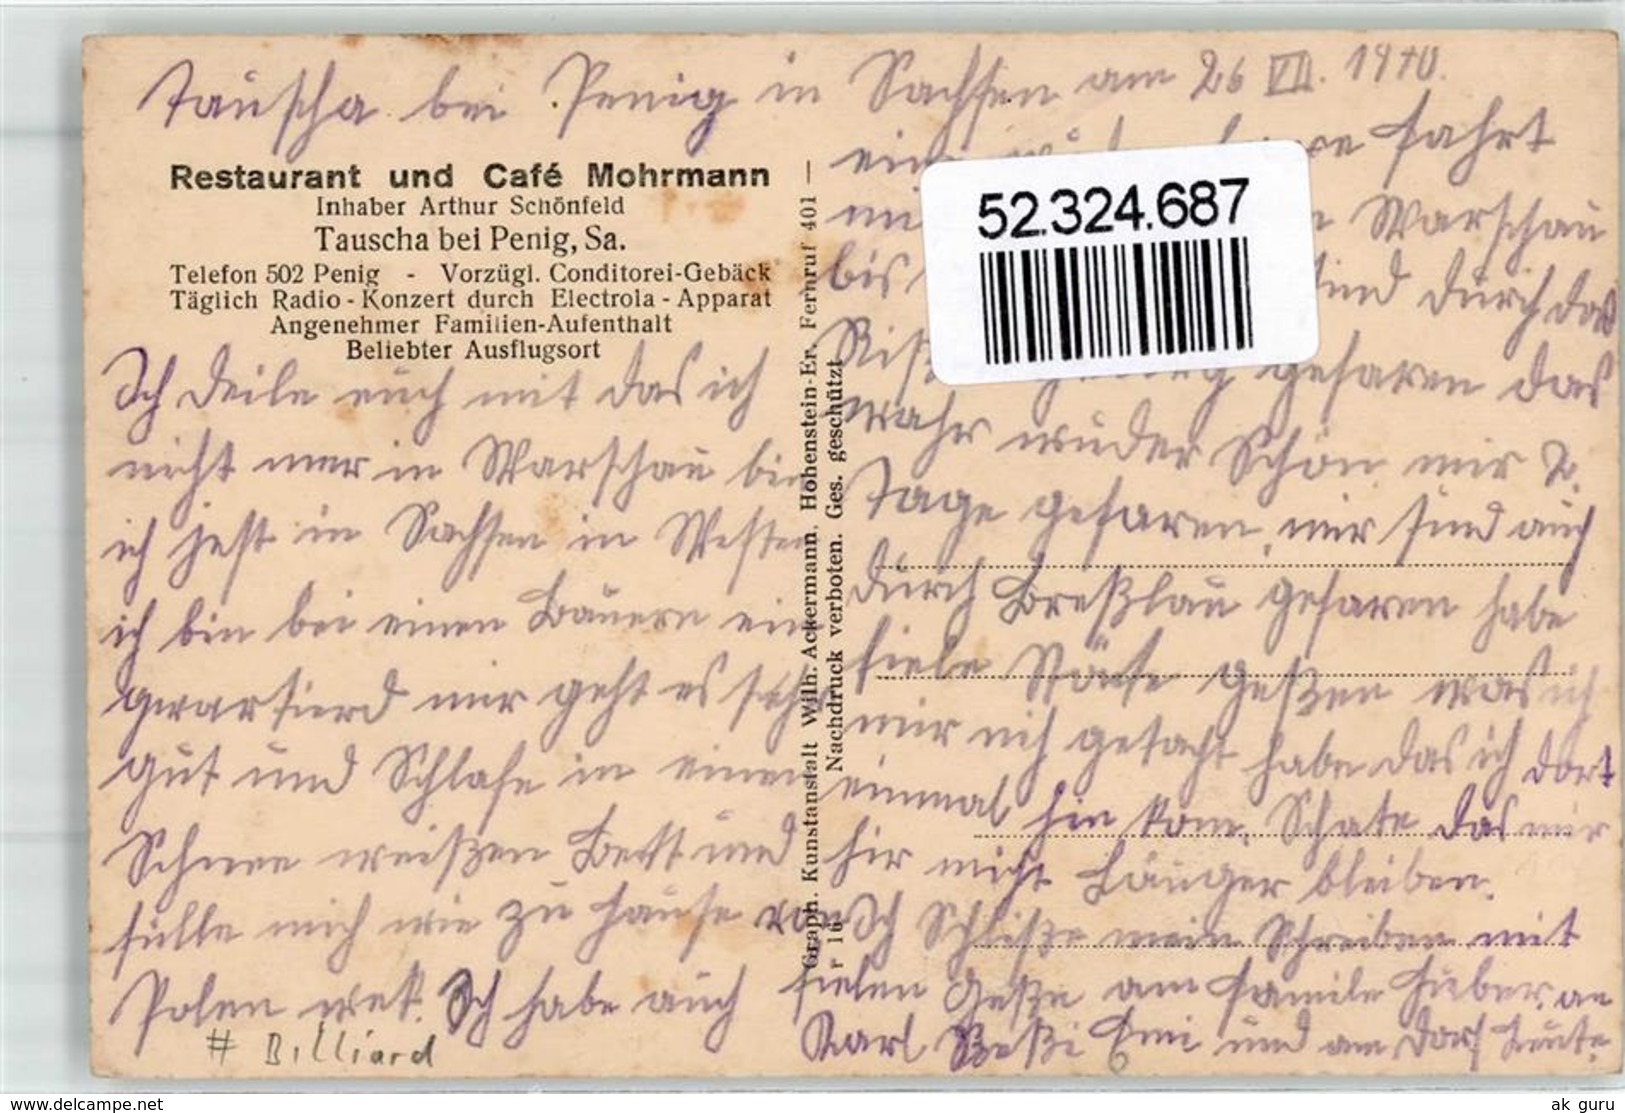 Tauscha bei Penig in Sachsen am 26 VII. 1940.
Restaurant und Café Mohrmann
Inhaber Arthur Schönfeld
Tauscha bei Penig, Sa.
Telefon 502 Penig - Vorzügl. Conditorei-Gebäck
Täglich Radio - Konzert durch Electrola - Apparat
Angenehmer Familien-Aufenthalt
Beliebter Ausflugsort
Ich deile euch mit das ich
nicht mer in Warschau bin
ich jest in Sachsen in Westen
ich bin bei einen Bauern ein
gwartierd mir geht es sehr
gut und Schlafe in einen
Schnee weißen Bett und
fülle mich wie zu hause von
Polen wek. Ich habe auch
# Billiard
Graph. Kunstanstalt Wilh. Ackermann, Hohenstein-Er. Fernruf 401 —
r 16 Nachdruck verboten. Ges. geschützt
52.324.687
fahrt
Warschau
bis sind durch das
gefaren das
wahr wunder Schön mir 2.
Tage gefaren, mir sind auch
durch Breßlau gefaren habe
fiele Städte geßen was ich
mir nich gedacht habe das ich dort
einmal hin kom. Schade das mir
hir nicht Länger bleiben.
Ich Schliße mein Schreiben mit
fielen Grüße am Familie Huber an
Karl und am Dorf Leute.
www.delcampe.net
ak_guru